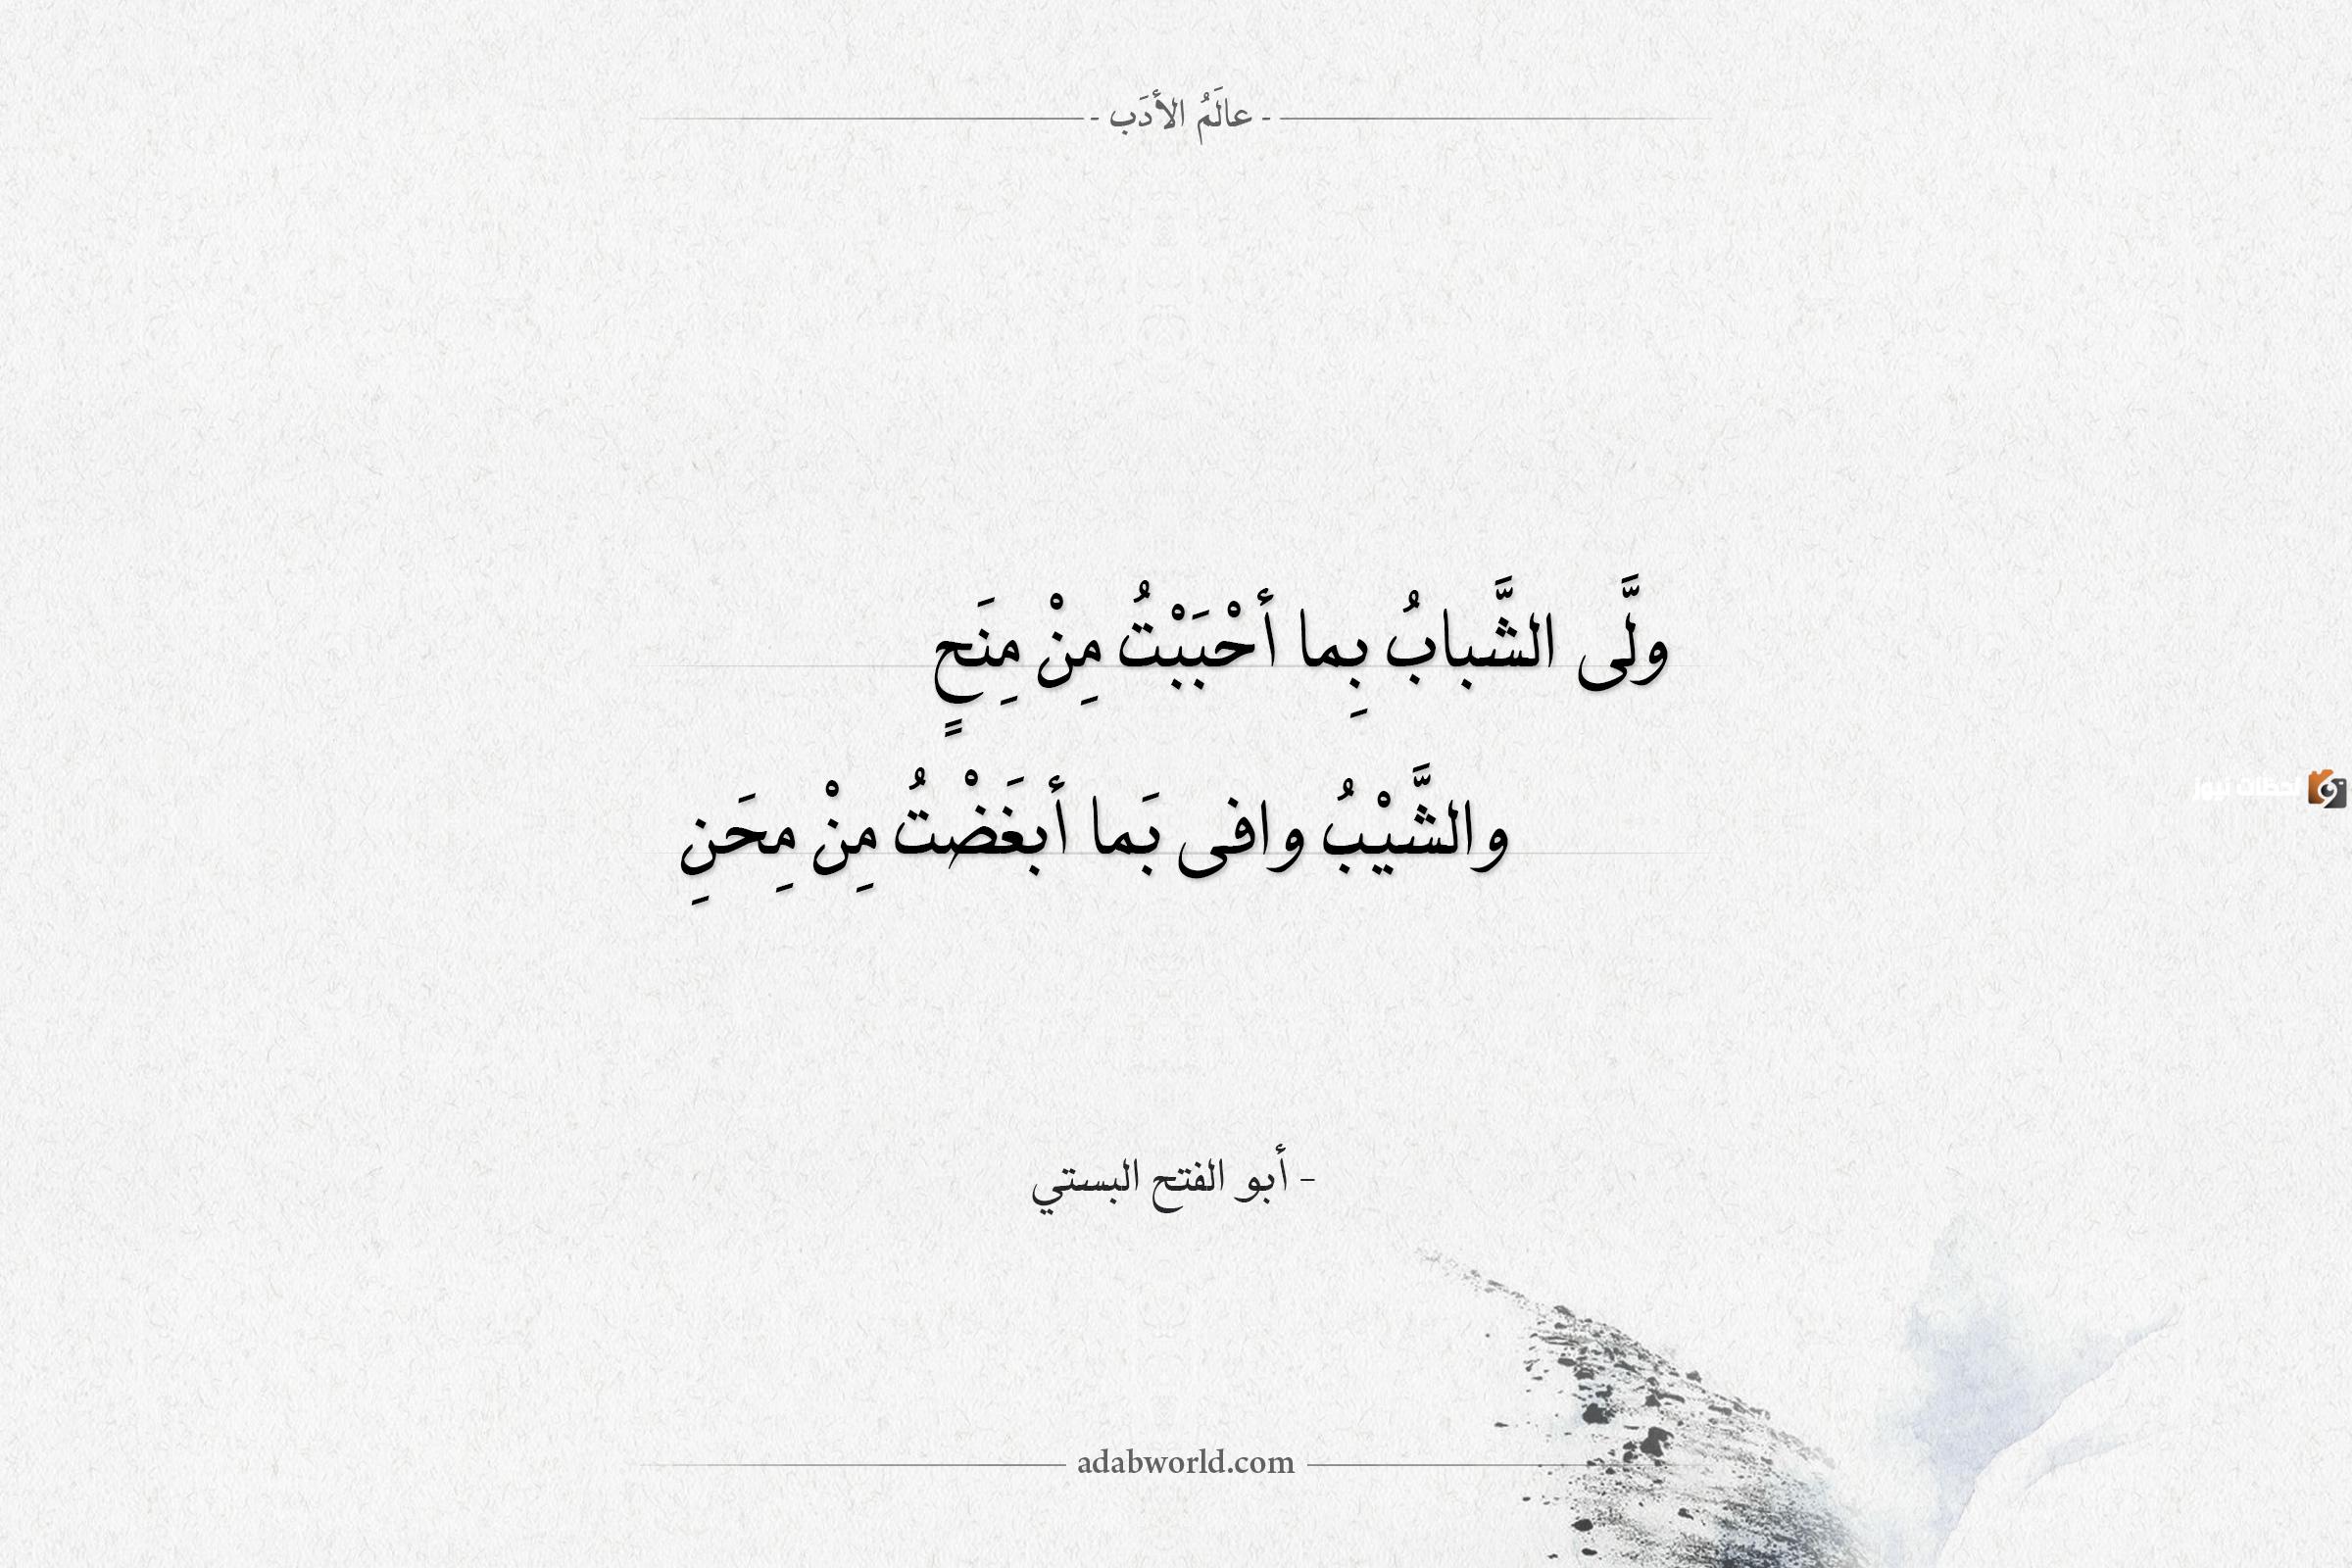 - عالَمُ الأدَب -
ولَّى الشَّبابُ بِما أحْبَبْتُ مِنْ مِنَحٍ
والشَّيْبُ وافى بَما أبغَضْتُ مِنْ مِحَنِ
- أبو الفتح البستي
لحظات نيوز
adabworld.com